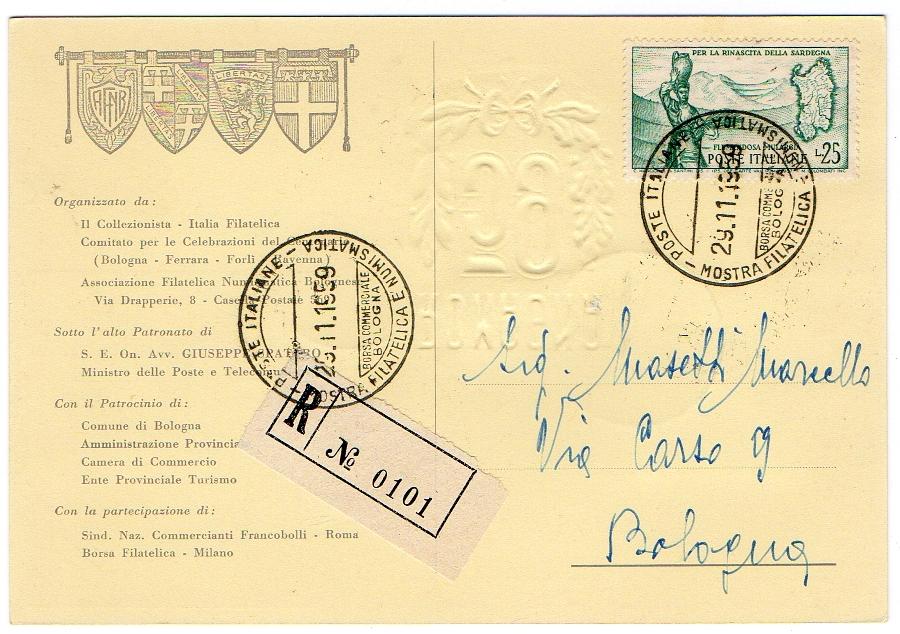 AFNB
LIBERTAS
LIBERTAS
LIBERTAS
Organizzato da :
Il Collezionista - Italia Filatelica
Comitato per le Celebrazioni del
(Bologna - Ferrara - Forlì - Ravenna)
Associazione Filatelica Numismatica Bolognese
Via Drapperie, 8 - Casella Postale
Sotto l'alto Patronato di
S. E. On. Avv. GIUSEPPE SPATARO
Ministro delle Poste e Telecomu
Con il Patrocinio di :
Comune di Bologna
Amministrazione Provincia
Camera di Commercio
Ente Provinciale Turismo
Con la partecipazione di :
Sind. Naz. Commercianti Francobolli - Roma
Borsa Filatelica - Milano
POSTE ITALIANE - MOSTRA FILATELICA E NUMISMATICA
29.11.1959
BORSA COMMERCIALE
BOLOGNA
R
№ 0101
PER LA RINASCITA DELLA SARDEGNA
POSTE ITALIANE L. 25
POSTE ITALIANE - MOSTRA FILATELICA E NUMISMATICA
29.11.1959
BORSA COMME
BOLOG
Sig. Masetti Marcello
Via Carso 9
Bologna